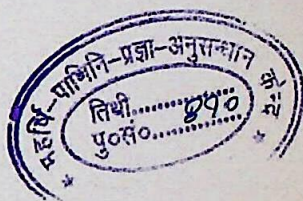 महर्षि-पाणिनि-प्रज्ञा-अनुसन्धान केन्द्र
तिथी..............
पु०सं०..............